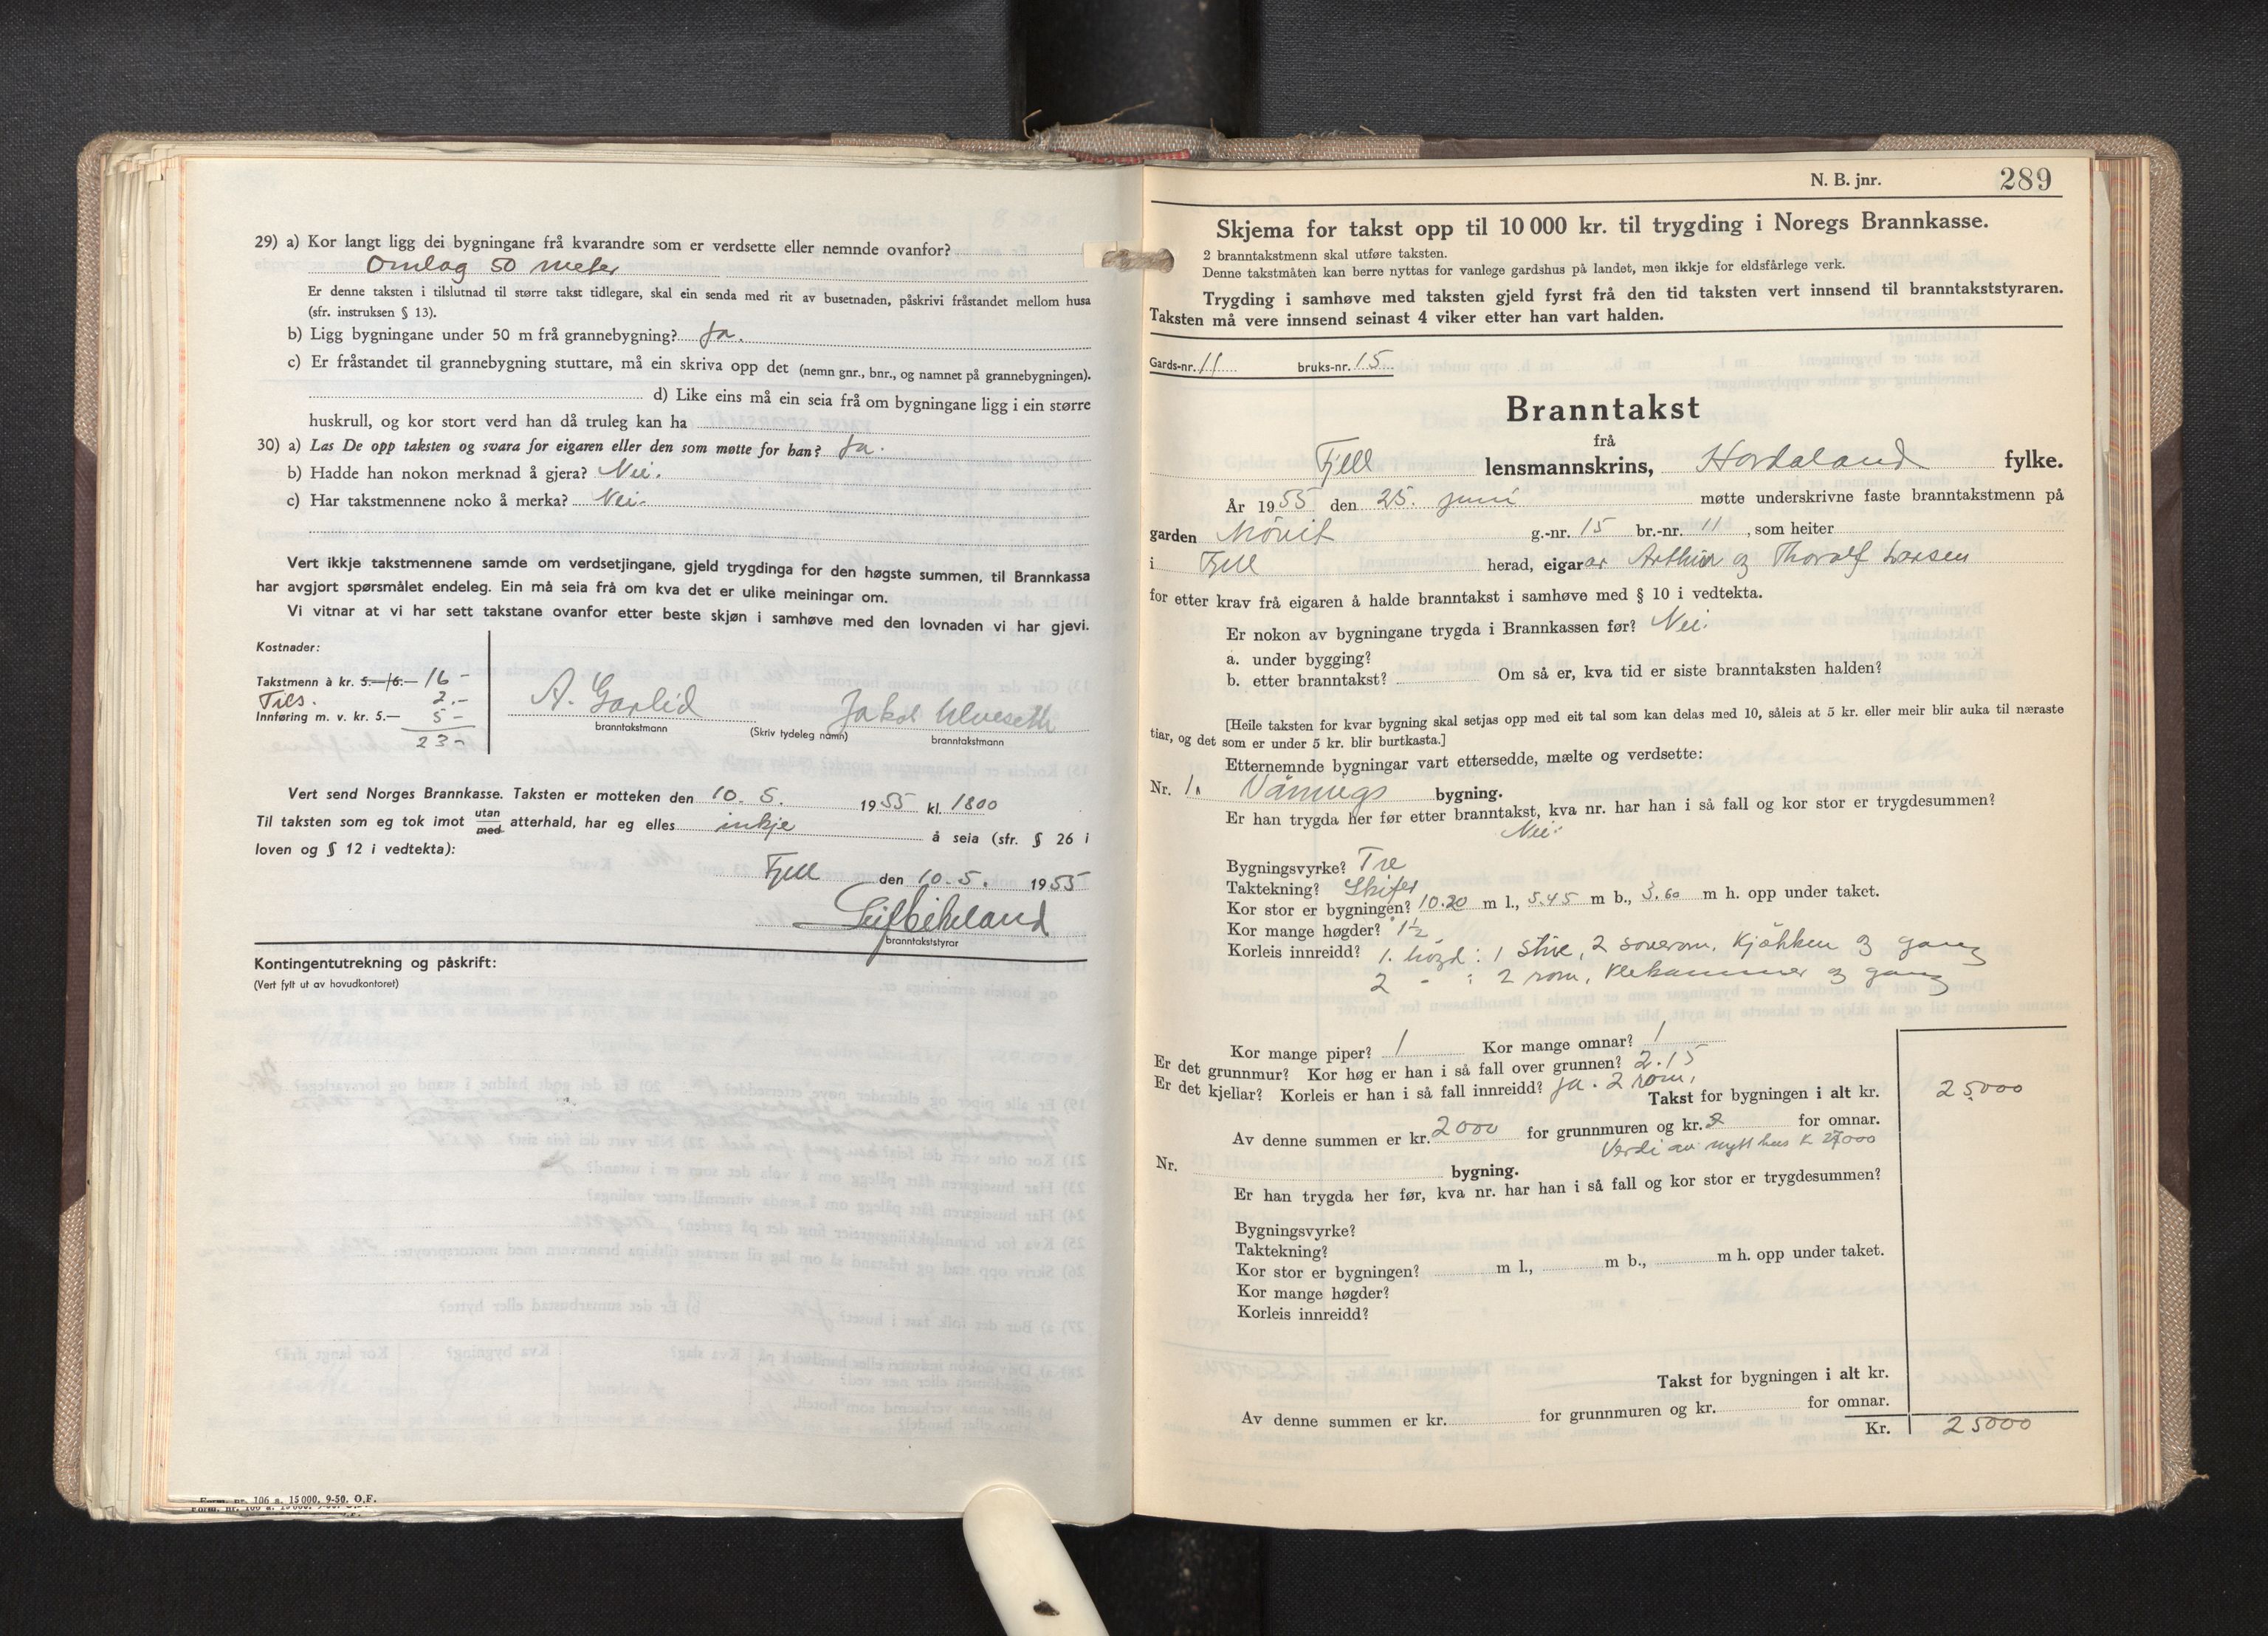 29) a) Kor langt ligg dei bygningane frå kvarandre som er verdsette eller nemnde ovanfor?
Omlag 50 meter
Er denne taksten i tilslutnad til større takst tidlegare, skal ein senda med rit av busetnaden, påskrivi fråstandet mellom husa
(sfr. instruksen § 13).
b) Ligg bygningane under 50 m frå grannebygning? Ja.
c) Er fråstandet til grannebygning stuttare, må ein skriva opp det (nemn gnr., bnr., og namnet på grannebygningen).
d) Like eins må ein seia frå om bygningane ligg i ein større
huskrull, og kor stort verd han då truleg kan ha
30) a) Las De opp taksten og svara for eigaren eller den som møtte for han? Ja.
b) Hadde han nokon merknad å gjera? Nei.
c) Har takstmennene noko å merka? Nei.
Vert ikkje takstmennene samde om verdsetjingane, gjeld trygdinga for den høgste summen, til Brannkassa
har avgjort spørsmålet endeleg. Ein må seia frå om kva det er ulike meiningar om.
Vi vitnar at vi har sett takstane ovanfor etter beste skjøn i samhøve med den lovnaden vi har gjevi.
Kostnader:
Takstmenn à kr. 5.—/6.— 16 -
Tils. 2.-
Innføring m. v. kr. 5.— 5 -
23-
A. Garlid
branntakstmann
(Skriv tydeleg namn)
Jakob Ulveseth
branntakstmann
Vert send Norges Brannkasse. Taksten er motteken den 10. 5. 1955 kl. 1800
Til taksten som eg tok imot utan/med atterhald, har eg elles inkje å seia (sfr. § 26 i
loven og § 12 i vedtekta):
Fjell den 10.5. 1955
branntakststyrar
Kontingentutrekning og påskrift:
(Vert fylt ut av hovudkontoret)
Form. nr. 106 a. 15000. 9-50. O.F.
N. B. jnr. 289
Skjema for takst opp til 10 000 kr. til trygding i Noregs Brannkasse.
2 branntakstmenn skal utføre taksten.
Denne takstmåten kan berre nyttas for vanlege gardshus på landet, men ikkje for eldsfårlege verk.
Trygding i samhøve med taksten gjeld fyrst frå den tid taksten vert innsend til branntakststyraren.
Taksten må vere innsend seinast 4 viker etter han vart halden.
Gards-nr. 11 bruks-nr. 15
Branntakst
frå
Fjell lensmannskrins, Hordaland fylke.
År 1955 den 25. juni møtte underskrivne faste branntakstmenn på
garden g.-nr. 15 br.-nr. 11, som heiter
i Fjell herad, eigarar Arthur og Thoralf Larsen
for etter krav frå eigaren å halde branntakst i samhøve med § 10 i vedtekta.
Er nokon av bygningane trygda i Brannkassen før? Nei.
a. under bygging?
b. etter branntakst? Om så er, kva tid er siste branntaksten halden?
[Heile taksten for kvar bygning skal setjas opp med eit tal som kan delas med 10, såleis at 5 kr. eller meir blir auka til næraste
tiar, og det som er under 5 kr. blir burtkasta.]
Etternemnde bygningar vart ettersedde, mælte og verdsette:
Nr. 1. Vånings bygning.
Er han trygda her før etter branntakst, kva nr. har han i så fall og kor stor er trygdesummen?
Nei.
Bygningsvyrke? Tre
Taktekning? Skifer
Kor stor er bygningen? 10.20 m l., 5.45 m b., 3.60 m h. opp under taket.
Kor mange høgder? 1½
Korleis innreidd? 1. høgd: 1 stue, 2 soverom, kjøkken og gang
2 - : 2 rom, klekammer og gang
Kor mange piper? 1 Kor mange omnar? 1
Er det grunnmur? Kor høg er han i så fall over grunnen? 2.15
Er det kjellar? Korleis er han i så fall innreidd? Ja. 2 rom.
Takst for bygningen i alt kr. 25000
Av denne summen er kr. 2000 for grunnmuren og kr. for omnar.
Verdi av nytt hus K 27000
Nr. bygning.
Er han trygda her før, kva nr. har han i så fall og kor stor er trygdesummen?
Bygningsvyrke?
Taktekning?
Kor stor er bygningen? m l., m b., m h. opp under taket.
Kor mange høgder?
Korleis innreidd?
Takst for bygningen i alt kr.
Av denne summen er kr. for grunnmuren og kr. for omnar.
Kr. 25000